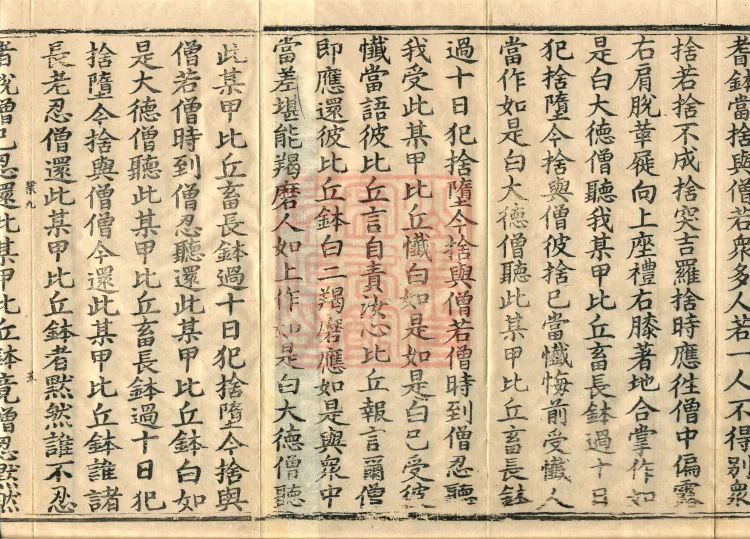 者鉢當捨與僧若衆多人若一人不得別衆
捨若捨不成捨突吉羅捨時應往僧中偏露
右肩脫革屣向上座禮右膝著地合掌作如
是白大德僧聽我某甲比丘畜長鉢過十日
犯捨墮今捨與僧彼捨已當懺悔前受懺人
當作如是白大德僧聽此某甲比丘畜長鉢
過十日犯捨墮今捨與僧若僧時到僧忍聽
我受此某甲比丘懺白如是如是白已受彼
懺當語彼比丘言自責汝心比丘報言爾僧
即應還彼比丘鉢白二羯磨應如是與衆中
當差堪能羯磨人如上作如是白大德僧聽
此某甲比丘畜長鉢過十日犯捨墮今捨與
僧若僧時到僧忍聽還此某甲比丘鉢白如
是大德僧聽此某甲比丘畜長鉢過十日犯
捨墮今捨與僧僧今還此某甲比丘鉢誰諸
長老忍僧還此某甲比丘鉢者默然誰不忍
者說僧已忍還此某甲比丘鉢竟僧忍默然
業九
五